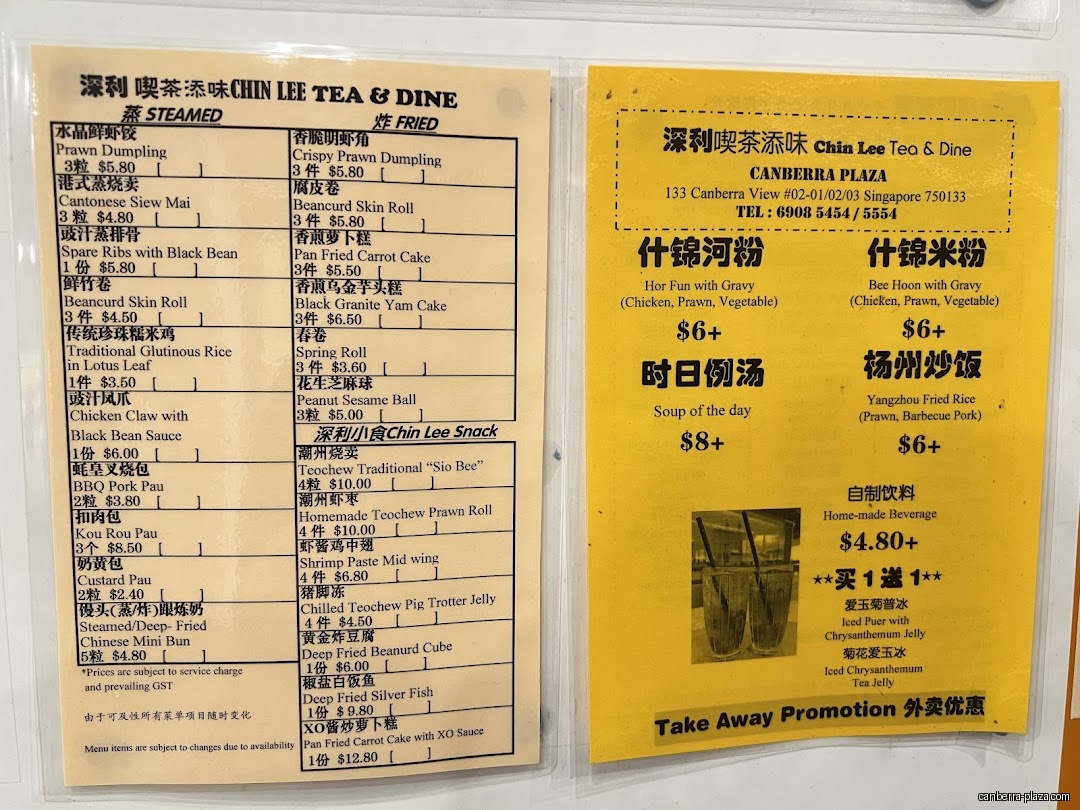 深利 喫茶添味CHIN LEE TEA & DINE
蒸 STEAMED
水晶鲜虾饺
Prawn Dumpling
3粒 $5.80 [ ]
港式蒸烧卖
Cantonese Siew Mai
3 粒 $4.80 [ ]
豉汁蒸排骨
Spare Ribs with Black Bean
1 份 $5.80 [ ]
鲜竹卷
Beancurd Skin Roll
3 件 $4.50 [ ]
传统珍珠糯米鸡
Traditional Glutinous Rice
in Lotus Leaf
1件 $3.50 [ ]
豉汁凤爪
Chicken Claw with
Black Bean Sauce
1份 $6.00 [ ]
蚝皇叉烧包
BBQ Pork Pau
2粒 $3.80 [ ]
扣肉包
Kou Rou Pau
3个 $8.50 [ ]
奶黄包
Custard Pau
2粒 $2.40 [ ]
馒头(蒸/炸)跟炼奶
Steamed/Deep- Fried
Chinese Mini Bun
5粒 $4.80 [ ]
*Prices are subject to service charge
and prevailing GST
由于可及性所有菜单项目随时变化
Menu items are subject to changes due to availability
炸 FRIED
香脆明虾角
Crispy Prawn Dumpling
3 件 $5.80 [ ]
腐皮卷
Beancurd Skin Roll
3 件 $5.80 [ ]
香煎萝卜糕
Pan Fried Carrot Cake
3件 $5.50 [ ]
香煎乌金芋头糕
Black Granite Yam Cake
3件 $6.50 [ ]
春卷
Spring Roll
3 件 $3.60 [ ]
花生芝麻球
Peanut Sesame Ball
3粒 $5.00 [ ]
深利小食Chin Lee Snack
潮州烧卖
Teochew Traditional “Sio Bee”
4粒 $10.00 [ ]
潮州虾枣
Homemade Teochew Prawn Roll
4 件 $10.00 [ ]
虾酱鸡中翅
Shrimp Paste Mid wing
4 件 $6.80 [ ]
猪脚冻
Chilled Teochew Pig Trotter Jelly
4 件 $4.50 [ ]
黄金炸豆腐
Deep Fried Beanurd Cube
1份 $6.00 [ ]
椒盐白饭鱼
Deep Fried Silver Fish
1份 $ 9.80 [ ]
XO酱炒萝卜糕
Pan Fried Carrot Cake with XO Sauce
1份 $12.80 [ ]
深利喫茶添味 Chin Lee Tea & Dine
CANBERRA PLAZA
133 Canberra View #02-01/02/03 Singapore 750133
TEL : 6908 5454 / 5554
什锦河粉
Hor Fun with Gravy
(Chicken, Prawn, Vegetable)
$6+
什锦米粉
Bee Hoon with Gravy
(Chicken, Prawn, Vegetable)
$6+
时日例汤
Soup of the day
$8+
杨州炒饭
Yangzhou Fried Rice
(Prawn, Barbecue Pork)
$6+
自制饮料
Home-made Beverage
$4.80+
**买 1 送 1**
爱玉菊普冰
Iced Puer with
Chrysanthemum Jelly
菊花爱玉冰
Iced Chrysanthemum
Tea Jelly
Take Away Promotion 外卖优惠
canberra-plaza.com